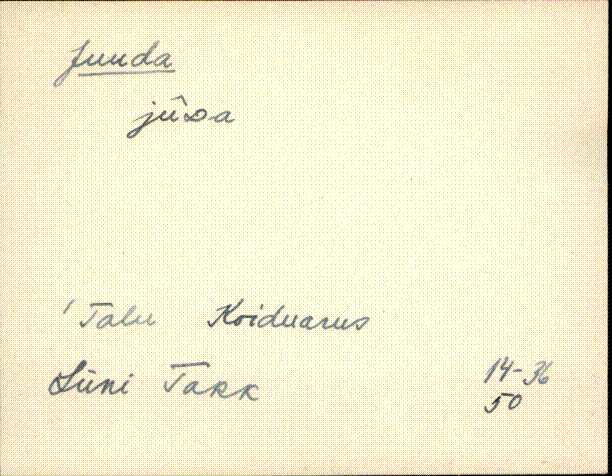 Juuda
jûᴅa
' Talu Koiduarus
Liini Takk
14-36
50